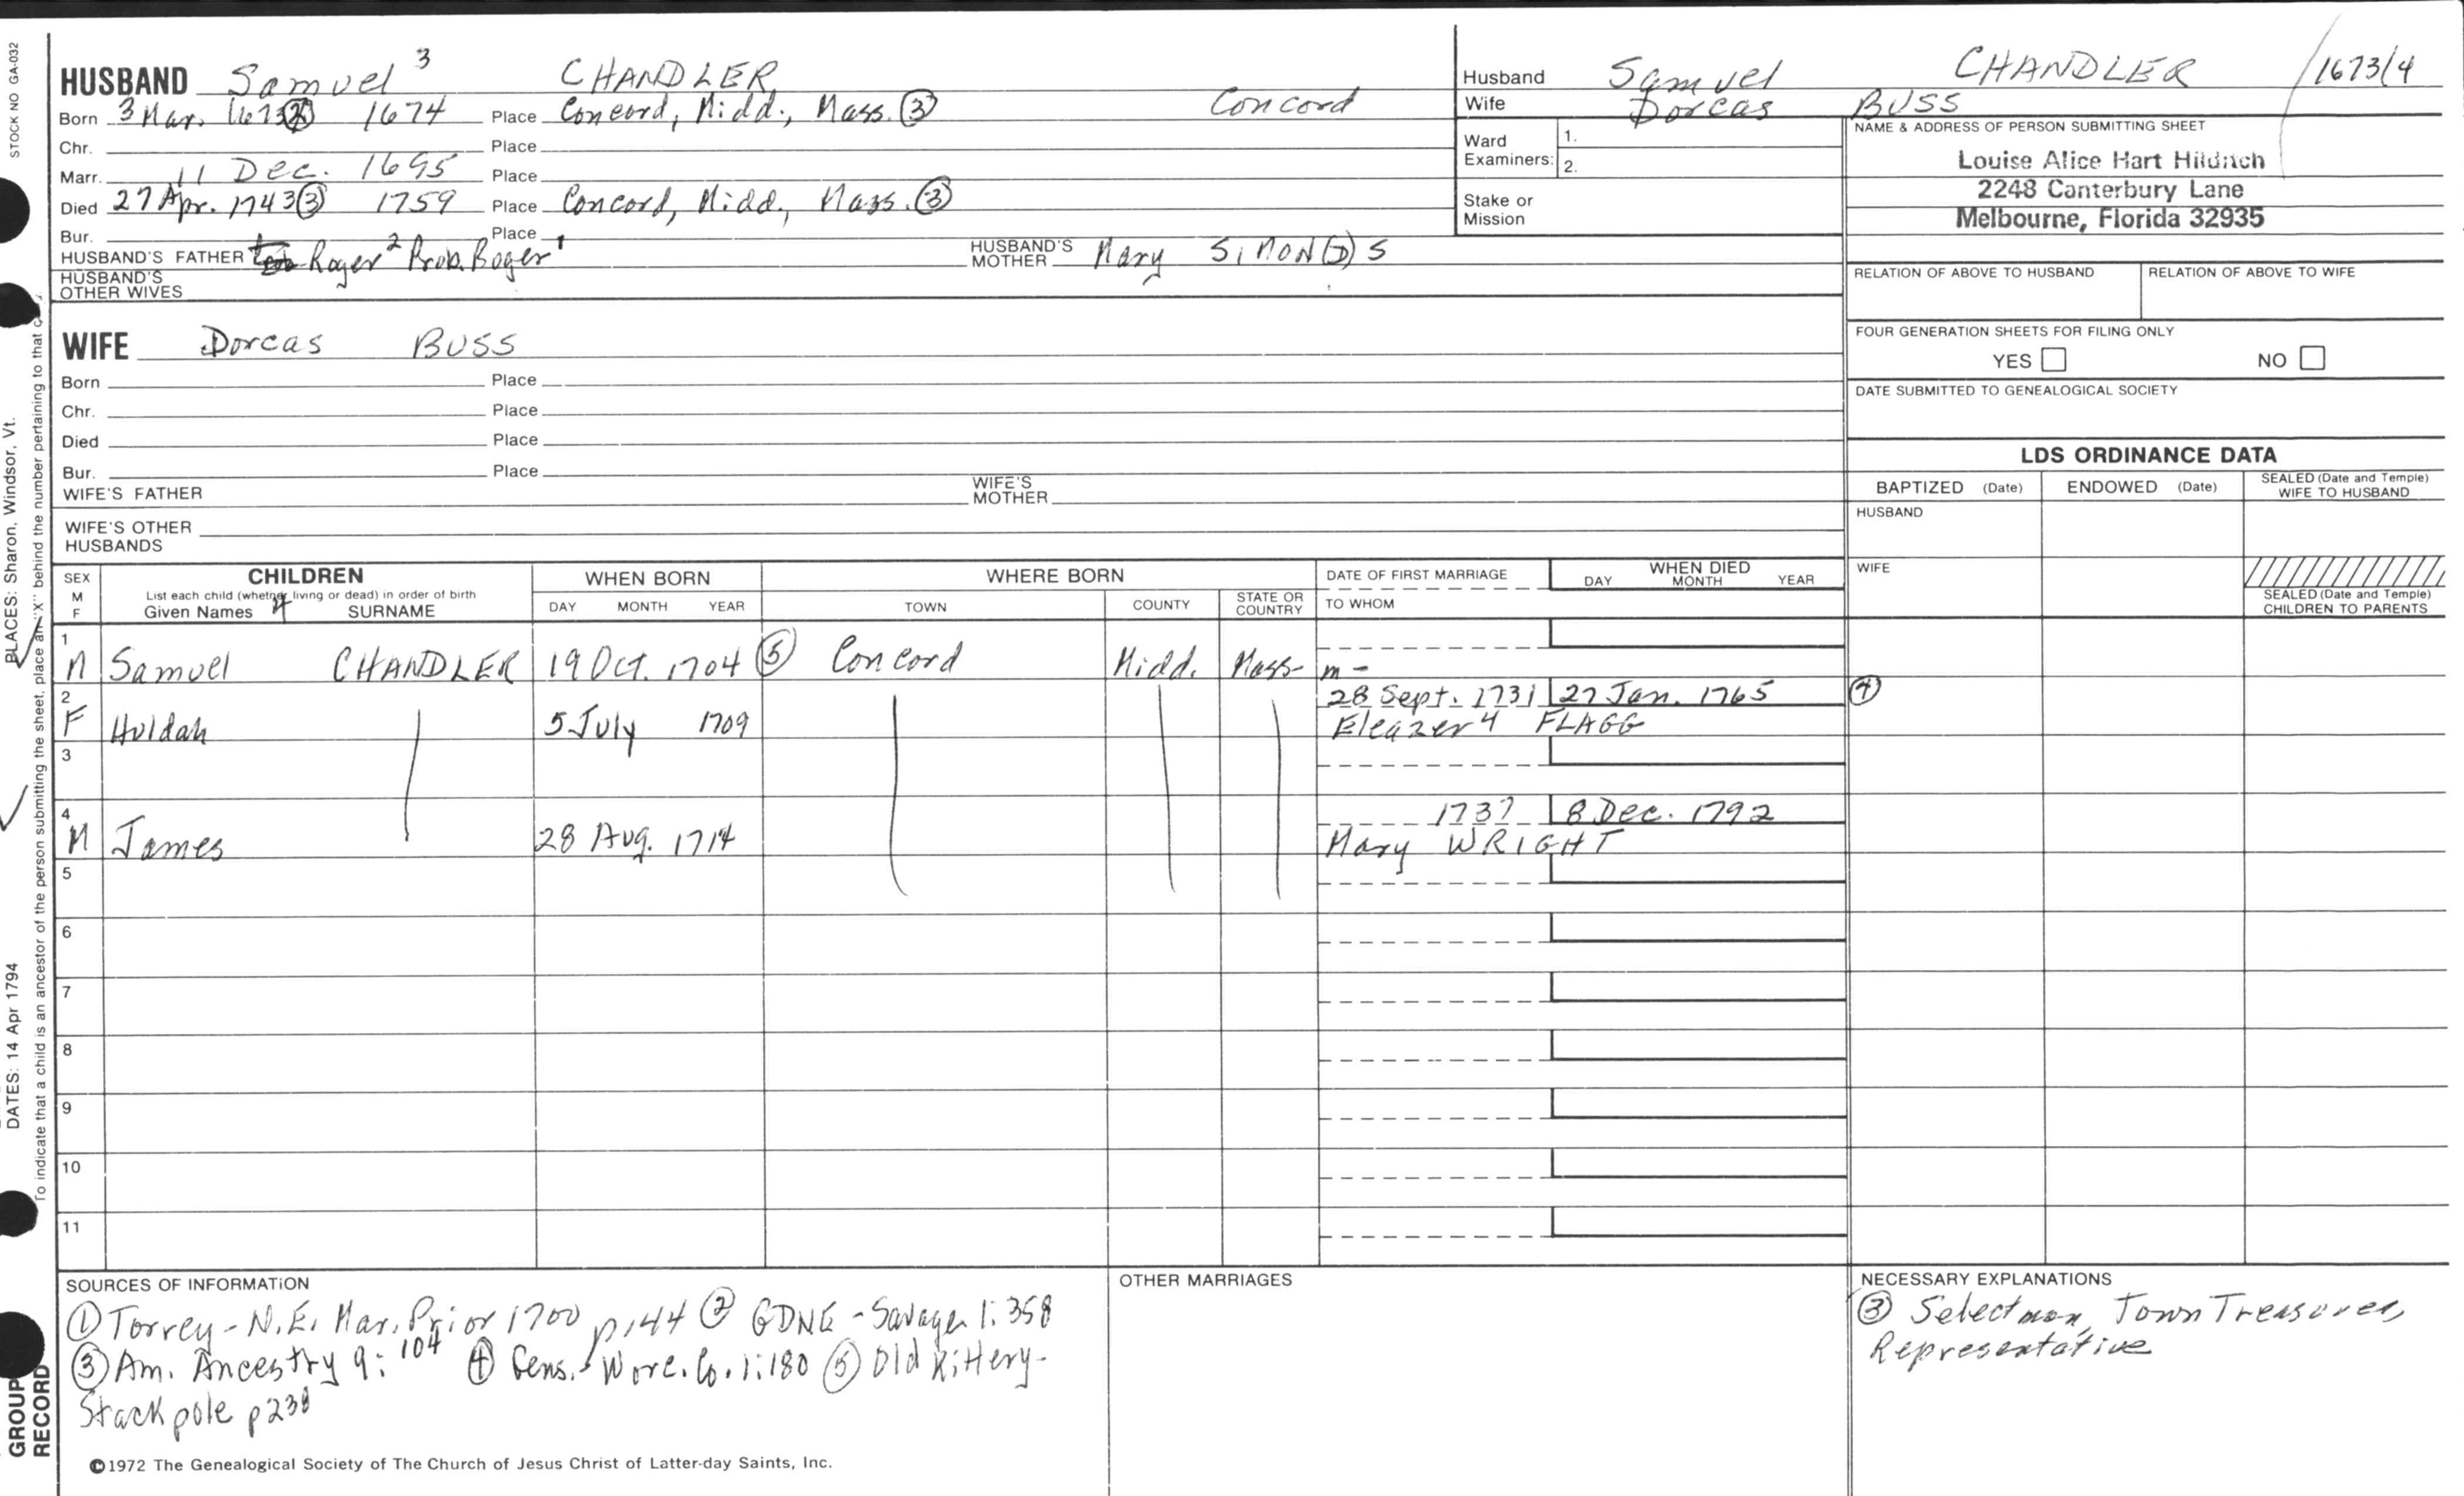 STOCK NO GA-032
HUSBAND Samuel 3 CHANDLER
Born 3 Mar. 1673 1674 Place Concord, Midd., Mass. ③ Concord
Chr. Place
Marr. 11 Dec. 1695 Place
Died 27 Apr. 1743 ③ 1759 Place Concord, Midd., Mass. ③
Bur. Place
HUSBAND'S FATHER Roger 2 Prob. Roger 1 HUSBAND'S MOTHER Mary SIMON(D)S
HUSBAND'S OTHER WIVES
Husband Samuel CHANDLER 1673/4
Wife Dorcas BUSS
Ward Examiners: 1.
2.
Stake or Mission
NAME & ADDRESS OF PERSON SUBMITTING SHEET
Louise Alice Hart Hilditch
2248 Canterbury Lane
Melbourne, Florida 32935
RELATION OF ABOVE TO HUSBAND RELATION OF ABOVE TO WIFE
FOUR GENERATION SHEETS FOR FILING ONLY
YES NO
DATE SUBMITTED TO GENEALOGICAL SOCIETY
WIFE Dorcas BUSS
Born Place
Chr. Place
Died Place
Bur. Place
WIFE'S FATHER WIFE'S MOTHER
WIFE'S OTHER HUSBANDS
LDS ORDINANCE DATA
BAPTIZED (Date) ENDOWED (Date) SEALED (Date and Temple) WIFE TO HUSBAND
HUSBAND
WIFE
SEALED (Date and Temple) CHILDREN TO PARENTS
SEX M F
CHILDREN
List each child (whether living or dead) in order of birth
Given Names 4 SURNAME
WHEN BORN
DAY MONTH YEAR
WHERE BORN
TOWN COUNTY STATE OR COUNTRY
DATE OF FIRST MARRIAGE
TO WHOM
WHEN DIED
DAY MONTH YEAR
1 M Samuel CHANDLER 19 Oct. 1704 ⑤ Concord Midd. Mass- m-
2 F Huldah 5 July 1709 28 Sept. 1731 27 Jan. 1765 ④
Eleazer 4 FLAGG
3
4 M James 28 Aug. 1714 1737 8 Dec. 1792
Mary WRIGHT
5
6
7
8
9
10
11
SOURCES OF INFORMATION
① Torrey - N.E. Mar. Prior 1700 p144 ② GDNE - Savage 1:358
③ Am. Ancestry 9:104 ④ Gens. Worc. Co. 1:180 ⑤ Old Kittery-
Stackpole p230
OTHER MARRIAGES
NECESSARY EXPLANATIONS
③ Selectman, Town Treasurer,
Representative
©1972 The Genealogical Society of The Church of Jesus Christ of Latter-day Saints, Inc.
PLACES: Sharon, Windsor, Vt.
DATES: 14 Apr 1794
To indicate that a child is an ancestor of the person submitting the sheet, place an "X" behind the number pertaining to that
GROUP
RECORD